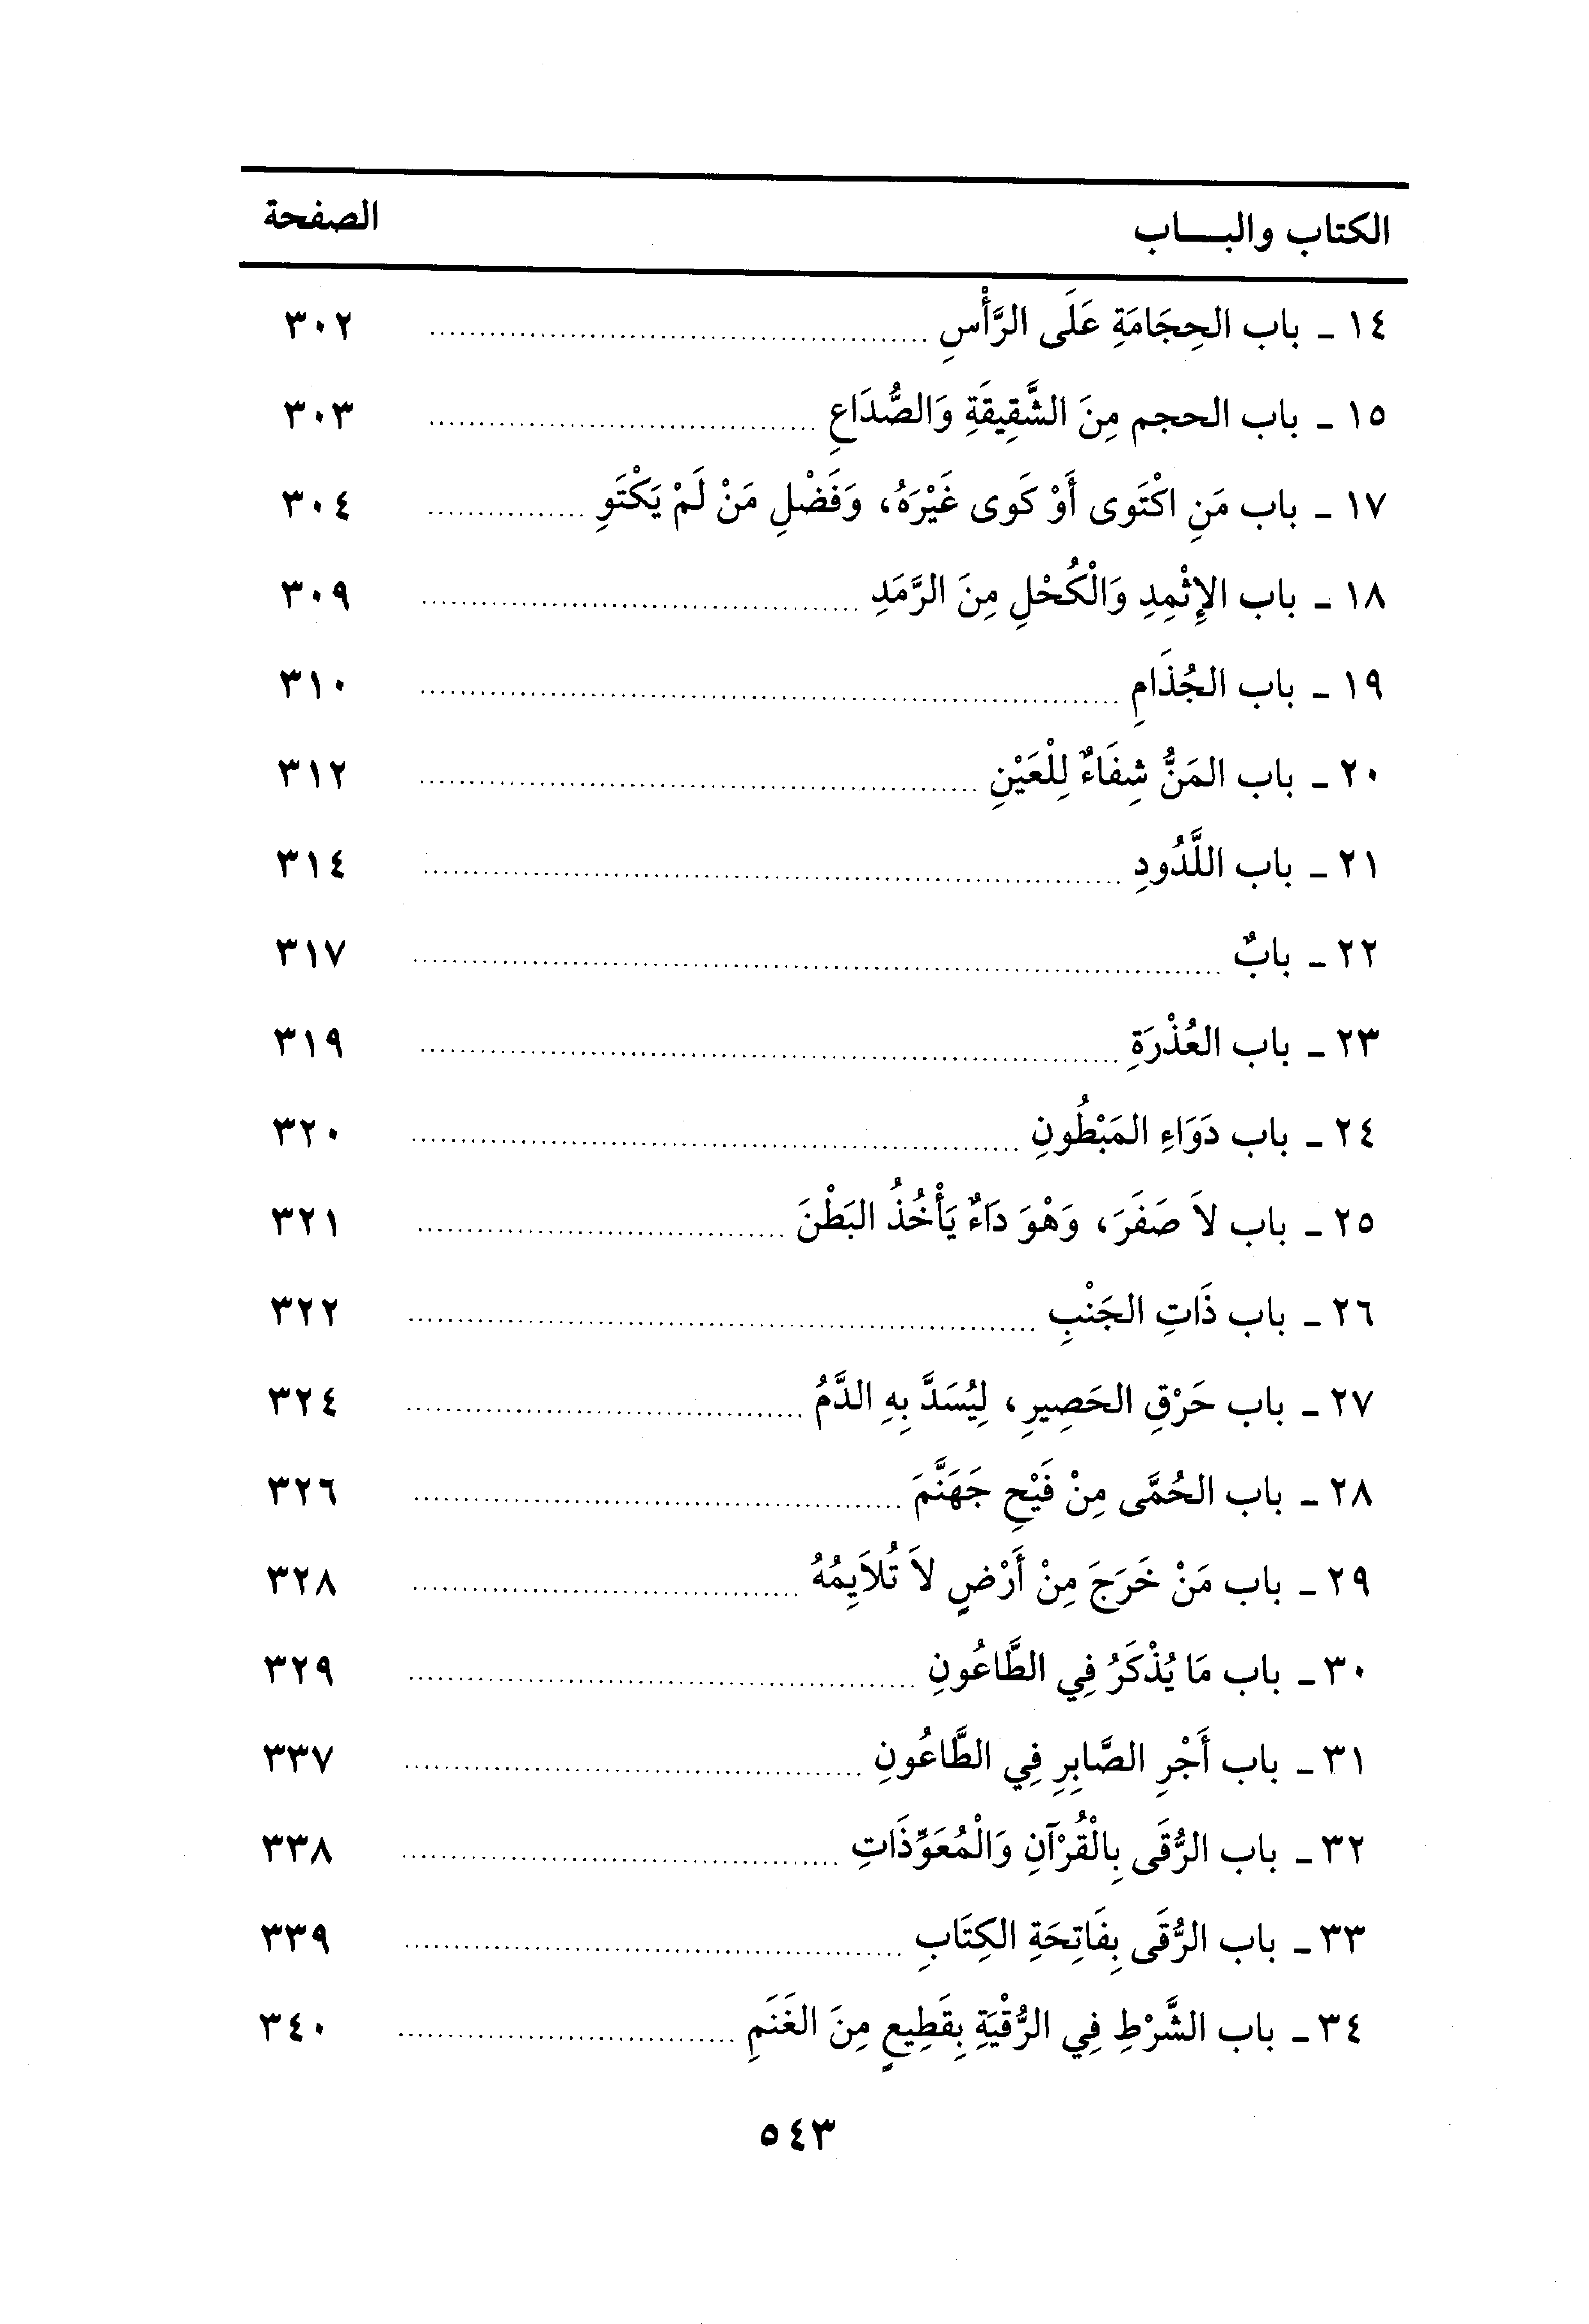 الكتاب والبـــاب الصفحة
١٤ - باب الحِجَامَةِ عَلَى الرَّأْسِ ........ ٣٠٢
١٥ - باب الحجم مِنَ الشَّقِيقَةِ وَالصُّدَاعِ ........ ٣٠٣
١٧ - باب مَنِ اكْتَوى أَوْ كَوى غَيْرَهُ، وَفَضْلِ مَنْ لَمْ يَكْتَوِ ........ ٣٠٤
١٨ - باب الإِثْمِدِ وَالْكُحْلِ مِنَ الرَّمَدِ ........ ٣٠٩
١٩ - باب الجُذَامِ ........ ٣١٠
٢٠ - باب المَنُّ شِفَاءٌ لِلْعَيْنِ ........ ٣١٢
٢١ - باب اللَّدُودِ ........ ٣١٤
٢٢ - بابٌ ........ ٣١٧
٢٣ - باب العُذْرَةِ ........ ٣١٩
٢٤ - باب دَوَاءِ المَبْطُونِ ........ ٣٢٠
٢٥ - باب لاَ صَفَرَ، وَهْوَ دَاءٌ يَأْخُذُ البَطْنَ ........ ٣٢١
٢٦ - باب ذَاتِ الجَنْبِ ........ ٣٢٢
٢٧ - باب حَرْقِ الحَصِيرِ، لِيُسَدَّ بِهِ الدَّمُ ........ ٣٢٤
٢٨ - باب الحُمَّى مِنْ فَيْحِ جَهَنَّمَ ........ ٣٢٦
٢٩ - باب مَنْ خَرَجَ مِنْ أَرْضٍ لاَ تُلاَيِمُهُ ........ ٣٢٨
٣٠ - باب مَا يُذْكَرُ فِي الطَّاعُونِ ........ ٣٢٩
٣١ - باب أَجْرِ الصَّابِرِ فِي الطَّاعُونِ ........ ٣٣٧
٣٢ - باب الرُّقَى بِالْقُرْآنِ وَالْمُعَوِّذَاتِ ........ ٣٣٨
٣٣ - باب الرُّقَى بِفَاتِحَةِ الكِتَابِ ........ ٣٣٩
٣٤ - باب الشَّرْطِ فِي الرُّقْيَةِ بِقَطِيعٍ مِنَ الغَنَمِ ........ ٣٤٠
٥٤٣